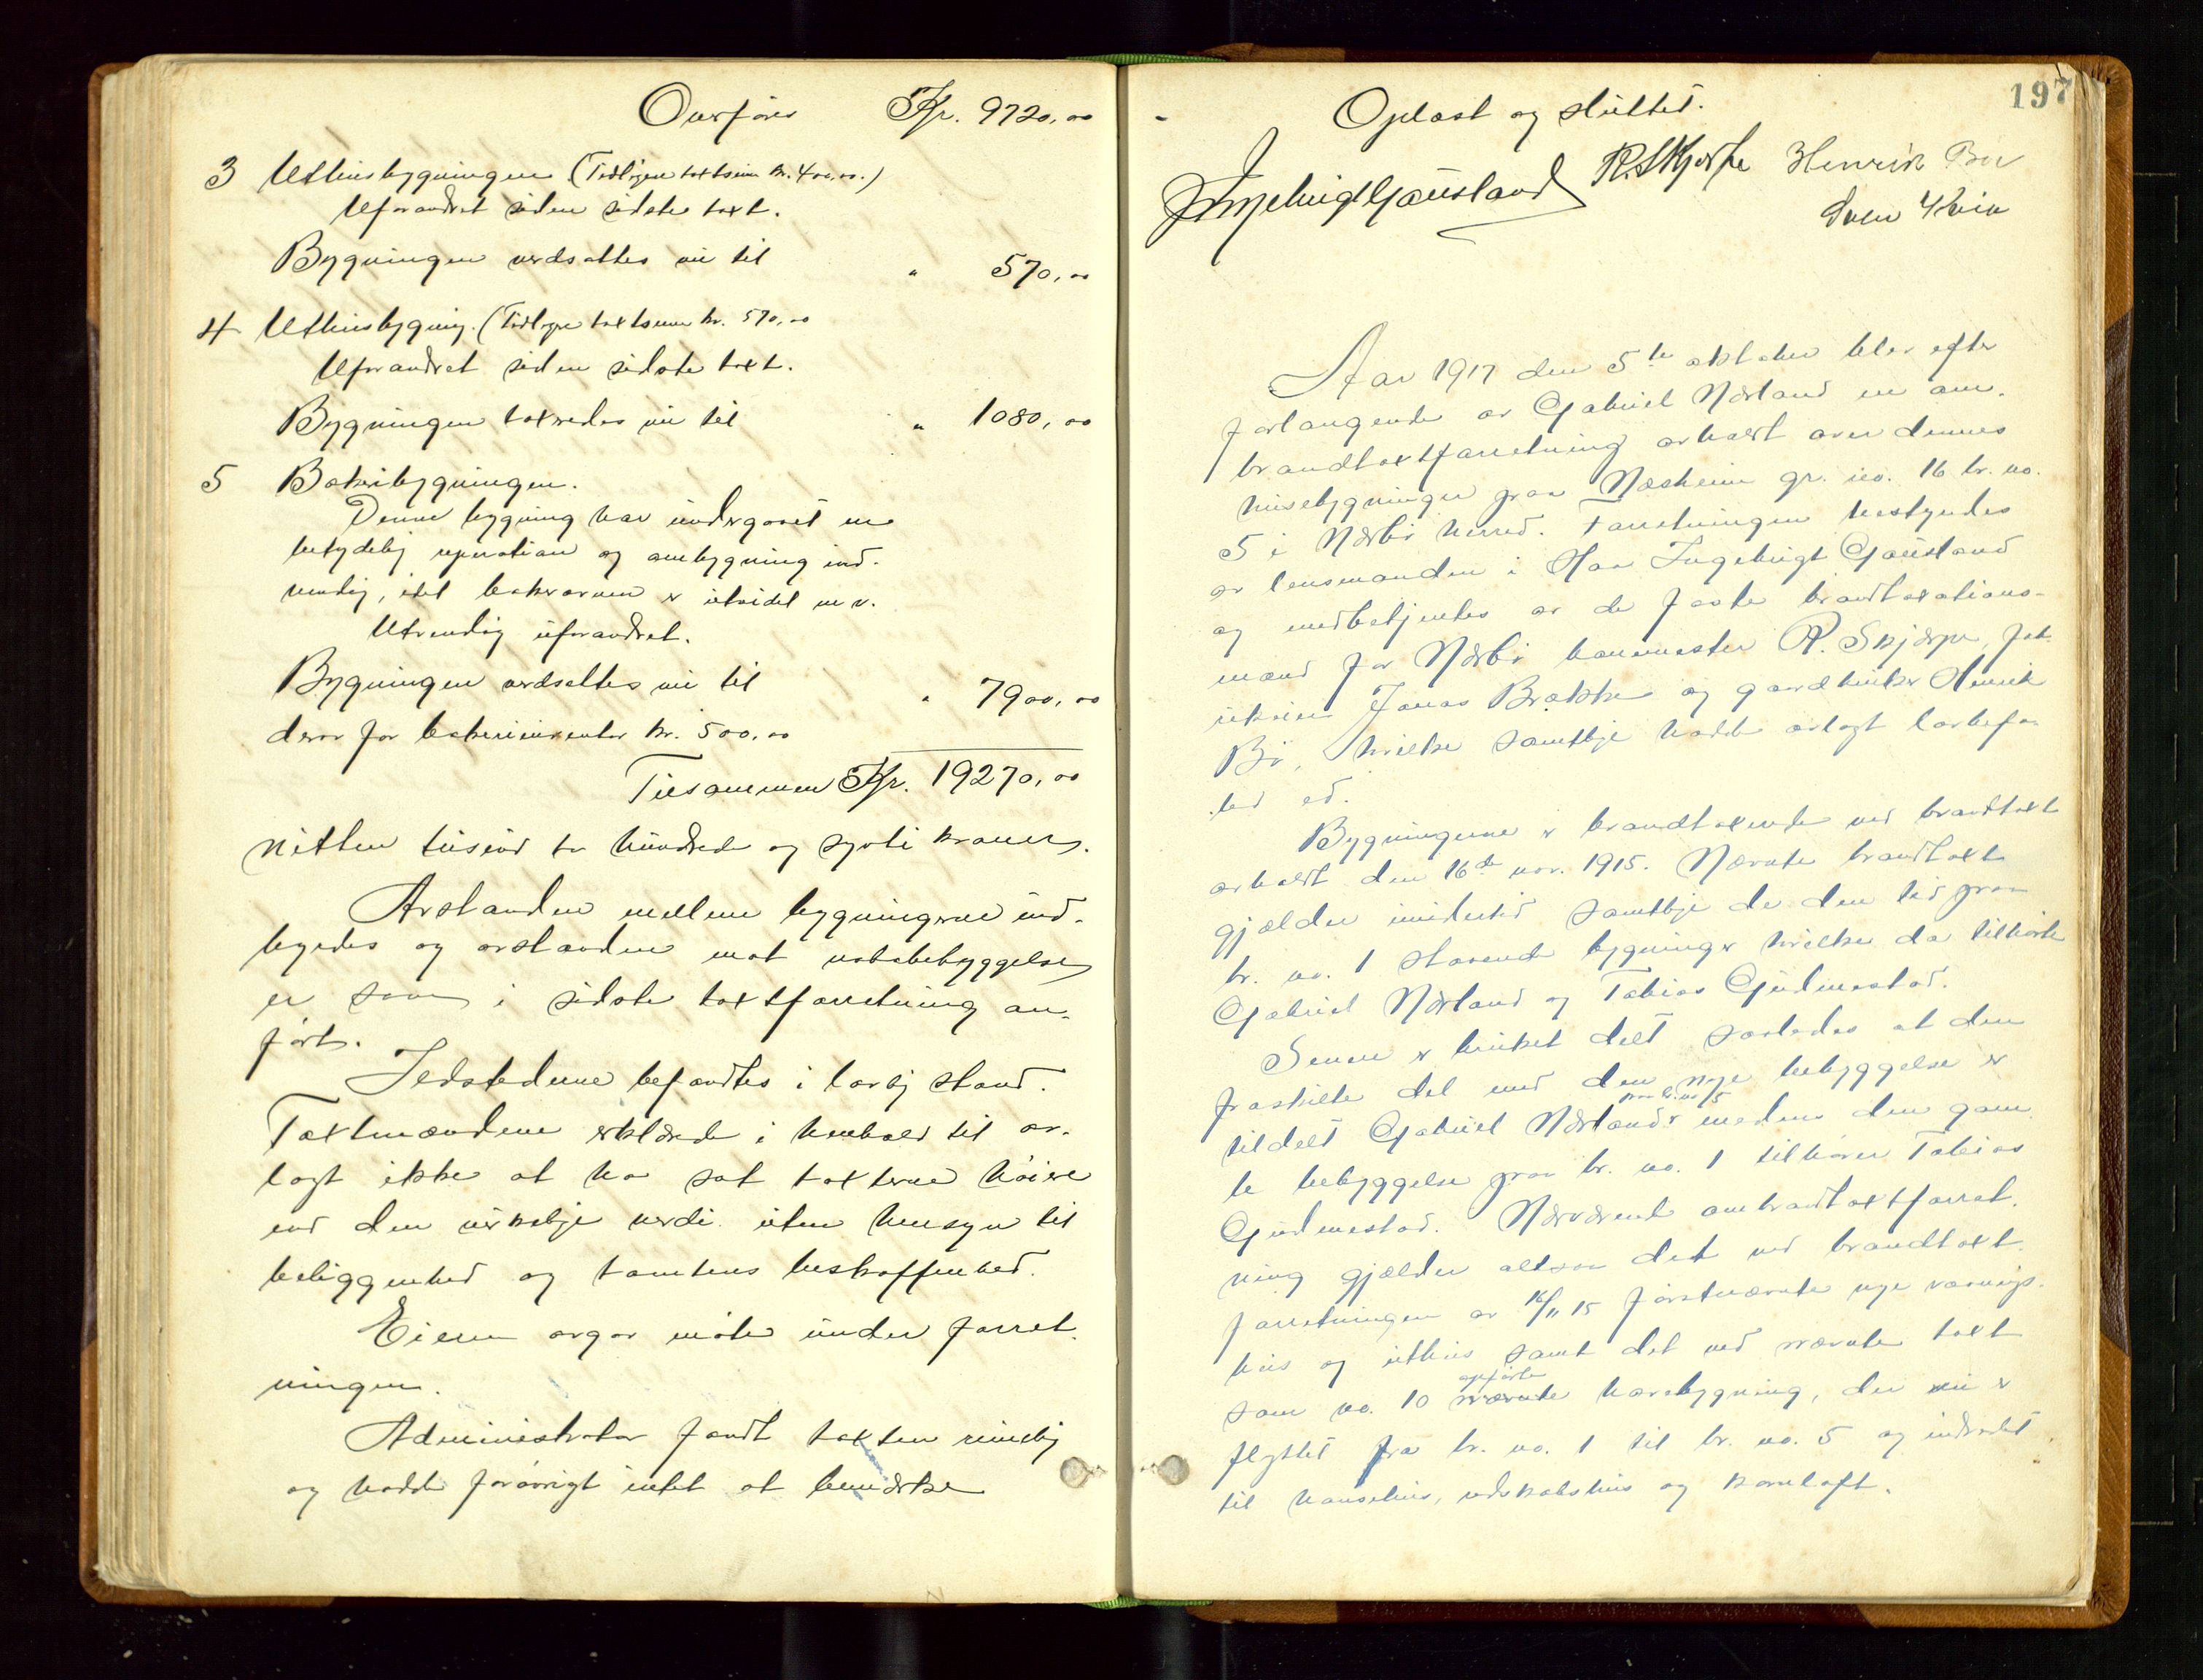 Overføres Kr. 9720,00
3 Uthusbygningen (Tidligere takstsum kr. 400,00.)
Uforandret siden sidste takst.
Bygningen verdsattes nu til " 570,00
4 Uthusbygning. (Tidligere takstsum kr. 570,00
Uforandret siden sidste takst.
Bygningen taxeredes nu til " 1080,00
5 Bakeribygningen.
Denne bygning har undergaaet en
betydelig reparation og ombygning ind-
vendig, idet bakerovnen er utvidet m.v.
Utvendig uforandret.
Bygningen verdsattes nu til " 7900,00
derav for bakeriinventar kr. 500,00
Tilsammen Kr. 19270,00
nitten tusind to hundrede og sytti kroner.
Avstanden mellem bygningerne ind-
byrdes og avstanden mot nabobebyggelse
er som i sidste takstforretning an-
ført.
Ildstederne befandtes i lovlig stand.
Takstmændene erklærede i henhold til av-
lagt ikke at ha sat taksterne høiere
end den virkelige verdi uten hensyn til
beliggenhed og tomtens beskaffenhed.
Eieren avgav møte under forret-
ningen.
Administrator fandt taksten rimelig
og hadde forøvrigt intet at bemerke
197
Oplæst og sluttet.
Ingebrigt Gausland R. Skjærpe Henrik Bø
Sven Hviv
Aar 1917 den 5te oktober blev efter
forlangende av Gabriel Nærland en om-
brandtakstforretning avholdt over dennes
husebygninger paa Næsheim gr. no. 16 br. no.
5 i Nærbø herred. Forretningen bestyredes
av lensmanden i Haa Ingebrigt Gausland
og medbetjentes av de faste brandtaxations-
mænd for Nærbø havnemester R. Skjærpe, fab-
rikeier Jonas Brække og gaardbruker Henrik
Bø, hvilke samtlige hadde avlagt lovbefa-
let ed.
Bygningerne er brandtakserede ved brandtakst
avholdt den 16de nov. 1915. Nævnte brandtakst
gjælder imidlertid samtlige de den tid paa
br. no. 1 staaende bygninger hvilke da tilhørte
Gabriel Nærland og Tobias Gudmestad.
Senere er bruket delt saaledes at den
fraskilte del med den nye bebyggelse er
paa br. no. 5
tildelt Gabriel Nærland medens den gam-
le bebyggelse paa br. no. 1 tilhører Tobias
Gudmestad. Nærværende ombrandtakstforret-
ning gjælder altsaa det ved brandtakst-
forretningen av 16/11 15 førstnævnte nye vaanings-
hus og uthus samt det ved nævnte takst
opførte
som no. 10 nævnte havebygning, der nu er
flyttet fra br. no. 1 til br. no. 5 og indredet
til hønsehus, redskabshus og kornloft.